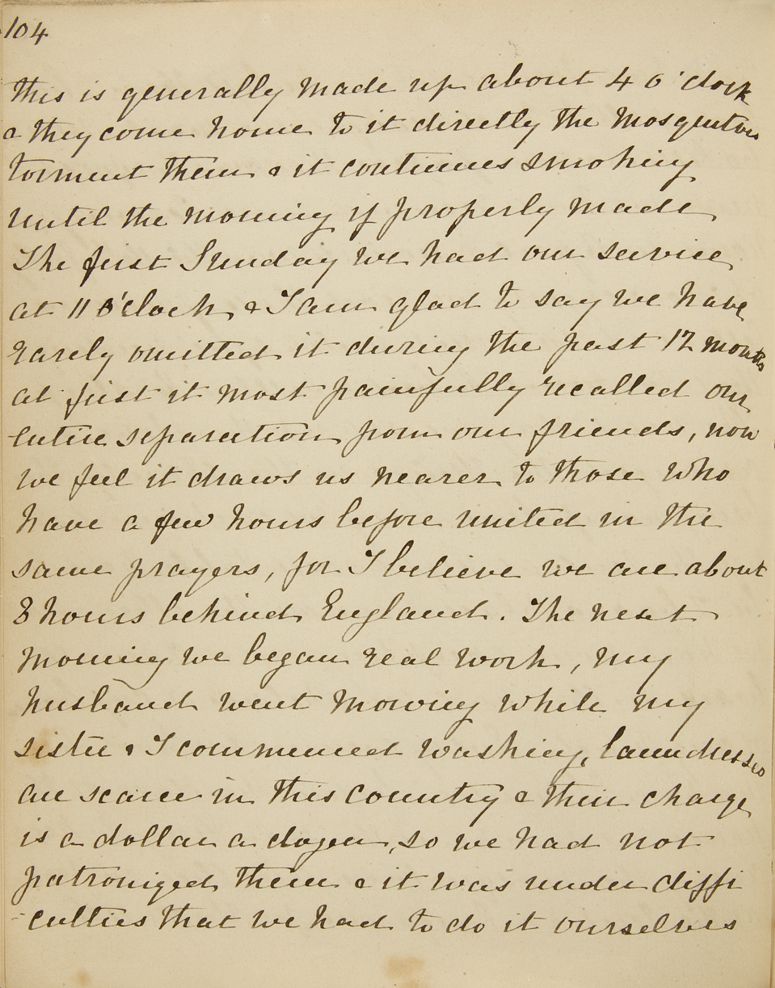 104
this is generally made up about 4 o'clock
& they come home to it directly the Mosquitoes
torment them & it continues smoking
until the morning if properly made
The first Sunday we had our service
at 11 o'clock, & I am glad to say we have
rarely omitted it during the past 12 months
at first it most painfully recalled our
entire separation from our friends, now
we feel it draws us nearer to those who
have a few hours before united in the
same prayers, for I believe we are about
8 hours behind England. The next
morning we began real work, my
husband went mowing while my
sister & I commenced washing, laundresses
are scarce in this country & their charge
is a dollar a dozen, so we had not
patronized them & it was under diffi
-culties that we had to do it ourselves